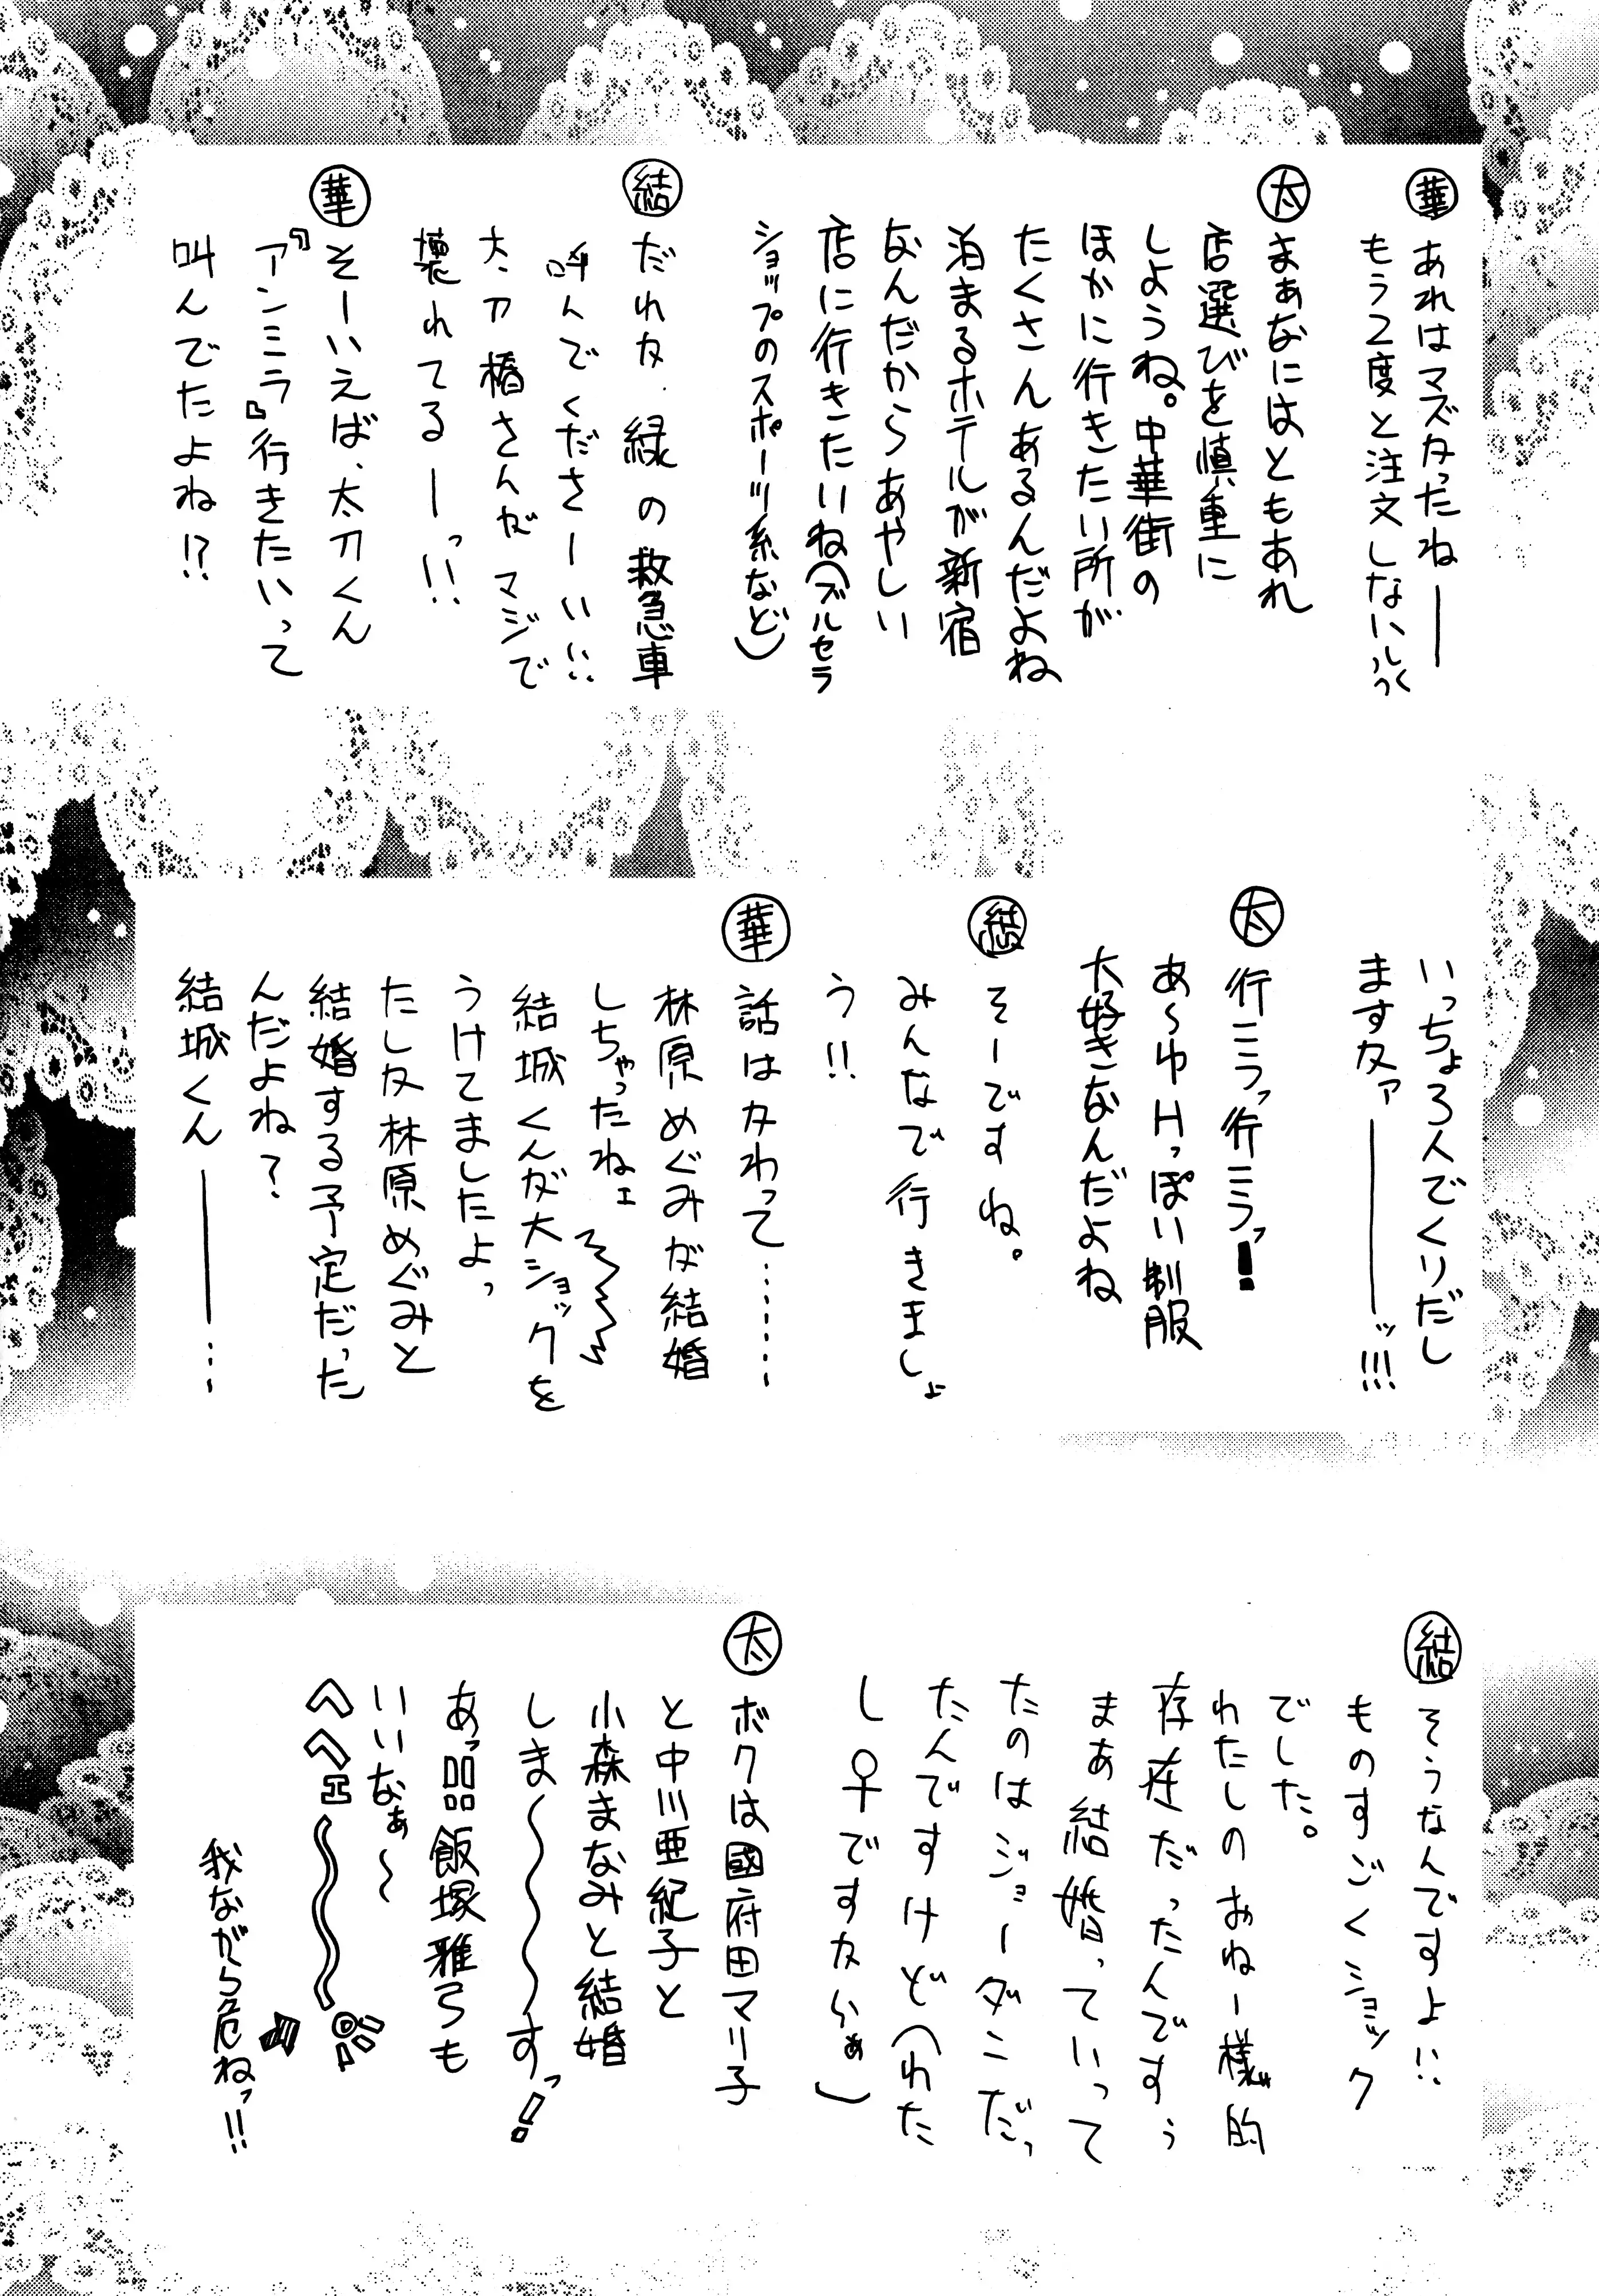 華 あれはマズかったね――
もう2度と注文しない
太 まぁなにはともあれ
店選びを慎重に
しようね。中華街の
ほかに行きたい所が
たくさんあるんだよね
泊まるホテルが新宿
なんだからあやしい
店に行きたいね(ブルセラ
ショップのスポーツ系など)
結 だれか、緑の救急車
呼んでくださーいい!!
太刀橋さんがマジで
壊れてるーっ!!
華 そーいえば、太刀くん
『アンミラ』行きたいって
叫んでたよね!?
いっちょ3人でくりだし
ますかァ――ッ!!!
太 行こうっ行こうっ!
あ〜ゆHっぽい制服
大好きなんだよね
結 そーですね。
みんなで行きましょ
う!!
華 話はかわって………
林原めぐみが結婚
しちゃったねェ
結城くんが大ショックを
うけてましたよっ
たしか林原めぐみと
結婚する予定だった
んだよね?
結城くん――…
結 そうなんですよ!!
ものすごくショック
でした。
わたしのおねー様的
存在だったんですぅ
まあ結婚っていって
たのはジョーダンだっ
たんですけど(わた
し♀ですからぁ)
太 ボクは國府田マリ子
と中川亜紀子と
小森まなみと結婚
しま〜〜〜すっ!
あっ!!飯塚雅弓も
いいなぁ〜
へへェ〜〜
我ながら危ねっ!!